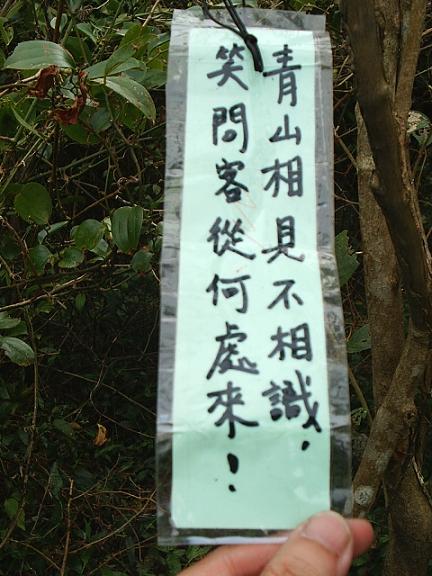 青山相見不相識，
笑問客從何處來！